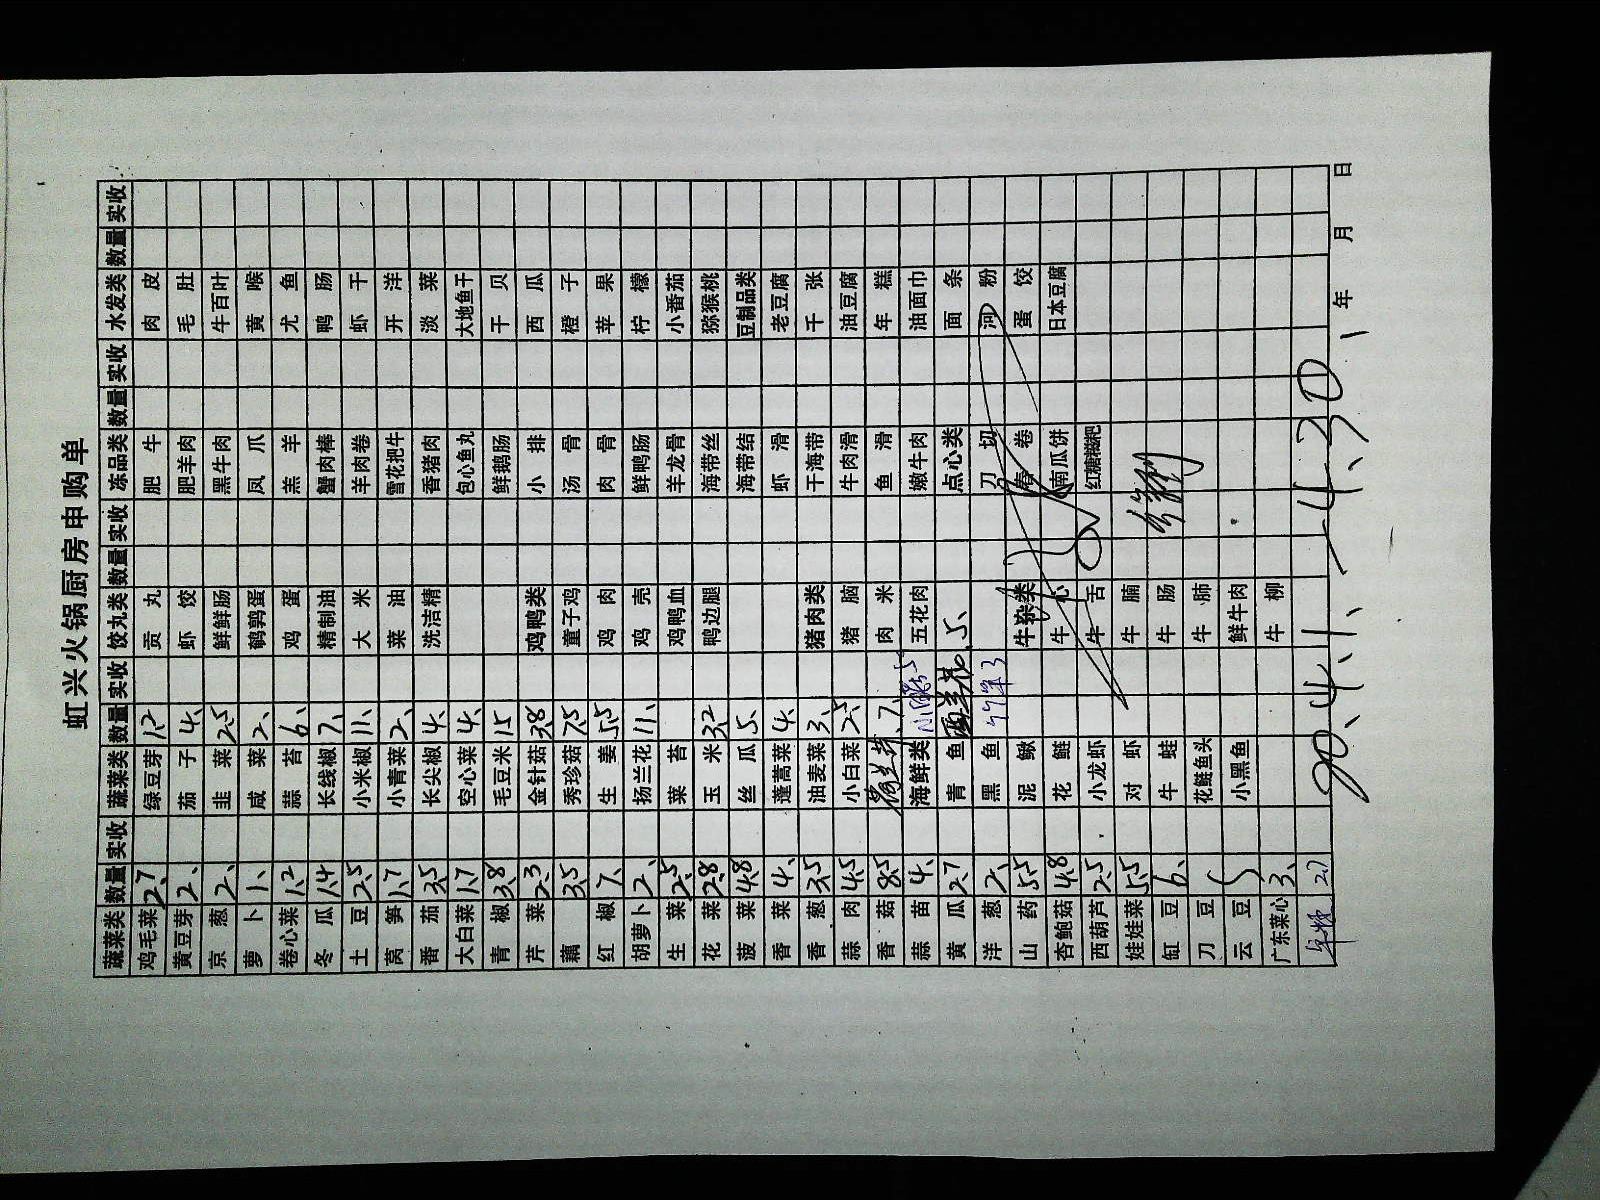 虹兴火锅厨房申购单
蔬菜类 数量 实收 蔬菜类 数量 实收 饺丸类 数量 实收 冻品类 数量 实收 水发类 数量 实收
鸡毛菜 2.7、 绿豆芽 1.2 贡丸 肥牛 肉皮
黄豆芽 2、 茄子 4、 虾饺 肥羊肉 毛肚
京葱 2、 韭菜 2.5 鲜鲜肠 黑牛肉 牛百叶
萝卜 1、 咸菜 2、 鹌鹑蛋 凤爪 黄喉
卷心菜 1.2 蒜苔 6、 鸡蛋 羔羊 尤鱼
冬瓜 1.4 长线椒 7、 精制油 蟹肉棒 鸭肠
土豆 2.5 小米椒 11、 大米 羊肉卷 虾干
莴笋 1.7 小青菜 2、 菜油 雪花把牛 开洋
番茄 3.5 长尖椒 4、 洗洁精 香猪肉 淡菜
大白菜 1.7 空心菜 4、 包心鱼丸 大地鱼干
青椒 3.8 毛豆米 15 鲜鹅肠 干贝
芹菜 2.3 金针菇 3.8 鸡鸭类 小排 西瓜
藕 3.5 秀珍菇 7.5 童子鸡 汤骨 橙子
红椒 7、 生姜 5.5 鸡肉 肉骨 苹果
胡萝卜 2、 扬兰花 11、 鸡壳 鲜鸭肠 柠檬
生菜 2.5 菜苔 鸡鸭血 羊龙骨 小番茄
花菜 2.8 玉米 3.2 鸭边腿 海带丝 猕猴桃
菠菜 4.8 丝瓜 5、 海带结 豆制品类
香菜 4、 蓬蒿菜 4、 虾滑 老豆腐
香葱 3.5 油麦菜 3、 猪肉类 干海带 千张
蒜肉 4.5 小白菜 2.5 猪脑 牛肉滑 油豆腐
香菇 8.5 7、 肉米 鱼滑 年糕
蒜苗 4、 海鲜类 五花肉 嫩牛肉 油面巾
黄瓜 2.7 青鱼 西兰花.5、 点心类 面条
洋葱 2、 黑鱼 刀切 河粉
山药 5.5 泥鳅 牛杂类 春卷 蛋饺
杏鲍菇 4.8 花鲢 牛心 南瓜饼 日本豆腐
西葫芦 2.5 小龙虾 牛舌 红糖糍粑
娃娃菜 5.5 对虾 牛腩
缸豆 6、 牛蛙 牛肠
刀豆 花鲢鱼头 牛肺
云豆 小黑鱼 鲜牛肉
广东菜心 3、 牛柳
2.7
年 月 日